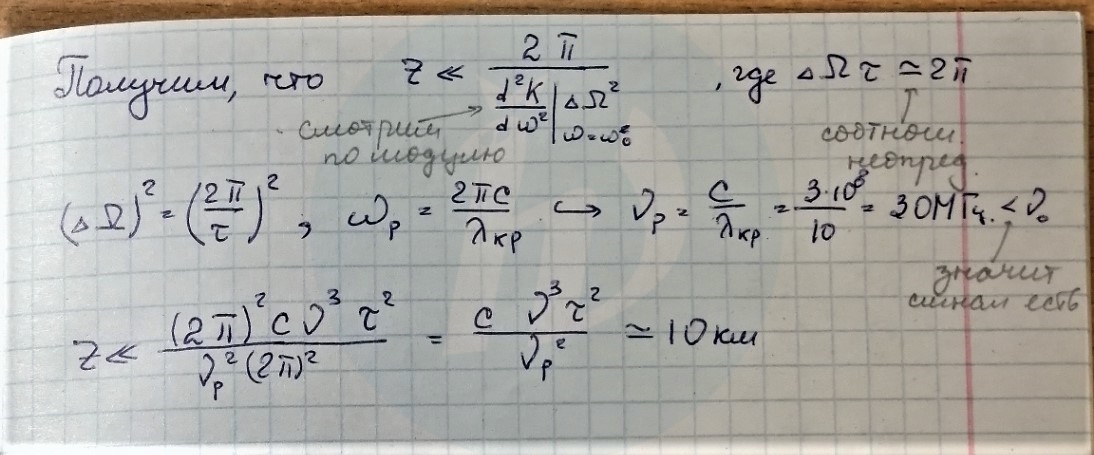 Получим, что z ≪ 2π / (d²k/dω² |ω=ω₀ ΔΩ²) , где ΔΩτ ≃ 2π
смотрим по модулю
соотнош. неопред.
(ΔΩ)² = (2π/τ)² ; ωₚ = 2πc/λкр ↪ νₚ = c/λкр = 3·10⁸/10 = 30МГц. < ν₀
значит сигнал есть
z ≪ (2π)² c ν³ τ² / νₚ² (2π)² = c ν³ τ² / νₚ² ≃ 10 км